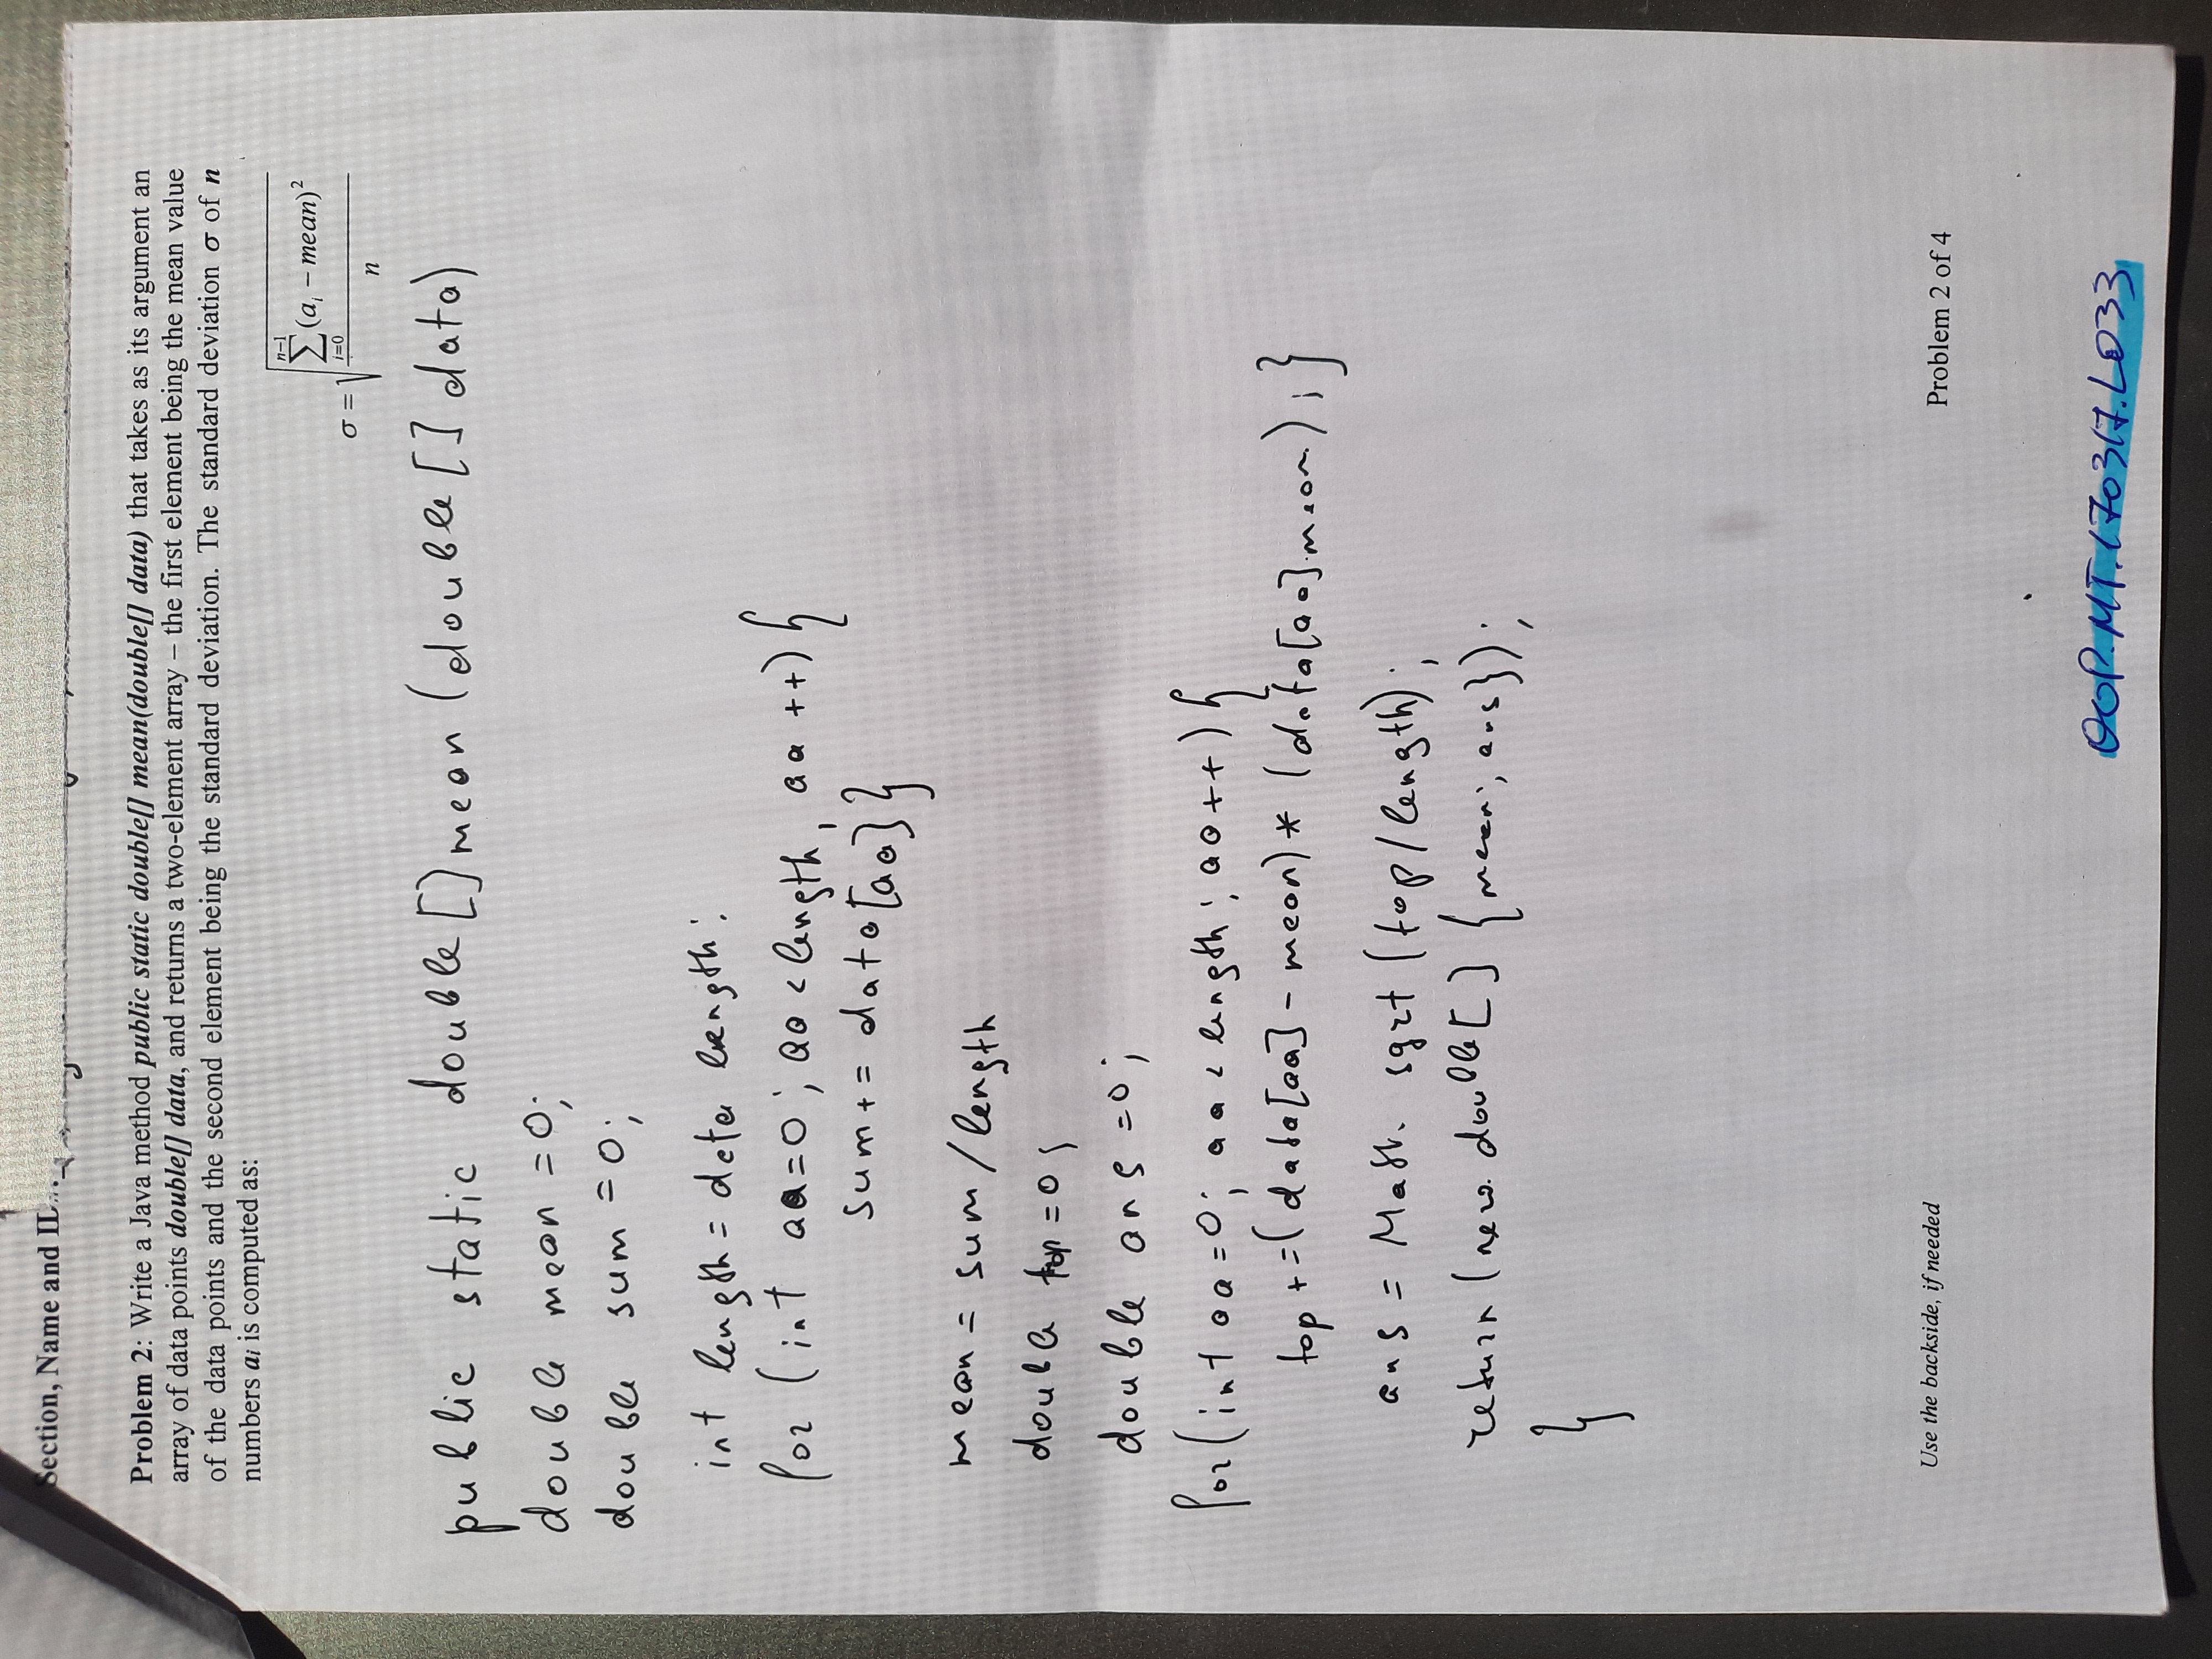 Section, Name and ID
Problem 2: Write a Java method public static double[] mean(double[] data) that takes as its argument an
array of data points double[] data, and returns a two-element array – the first element being the mean value
of the data points and the second element being the standard deviation. The standard deviation σ of n
numbers aᵢ is computed as:
σ = √(∑_{i=0}^{n−1} (aᵢ − mean)² / n)
public static double[] mean (double[] data)
double mean = 0;
double sum = 0;
int length = data length;
for (int aa=0; aa < length, aa ++) {
sum += data[aa]}
mean = sum / length
double top = 0;
double ans = 0;
for (int aa = 0; aa < length; aa++) {
top += (data[aa] - mean) * (data[aa]-mean);}
ans = Math. sqrt (top/length);
return (new double[] {mean; ans});
}
Use the backside, if needed
Problem 2 of 4
OOP.MT.170317.L033